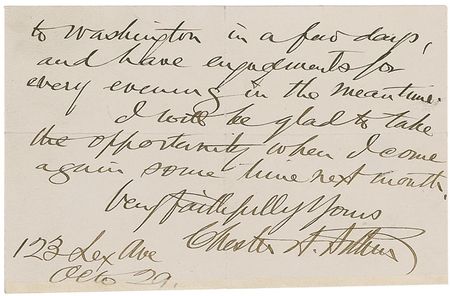 to Washington in a few days,
and have engagements for
every evening in the meantime.
I will be glad to take
the opportunity when I come
again some time next month.
Very faithfully Yours
Chester A. Arthur
123 Lex Ave
Octo 29.